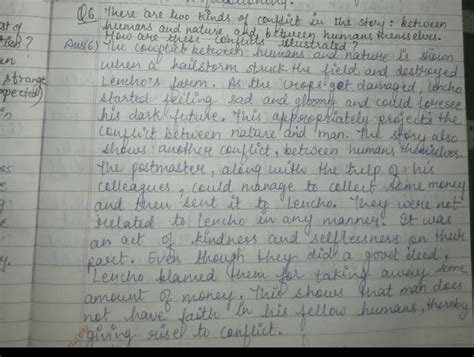 Q6 There are two kinds of conflict in the story: between
humans and nature and between humans themselves.
How are these conflicts illustrated?
Ans(6) The conflict between humans and nature is shown
when a hailstorm struck the field and destroyed
Lencho's farm. As the crops got damaged, Lencho
started feeling sad and gloomy and could foresee
his dark future. This appropriately projects the
conflict between nature and man. The story also
shows another conflict, between humans themselves.
The postmaster, along with the help of his
colleagues, could manage to collect some money
and then sent it to Lencho. They were not
related to Lencho in any manner. It was
an act of kindness and selflessness on their
part. Even though they did a good deed,
Lencho blamed them for taking away some
amount of money. This shows that man does
not have faith in his fellow humans, thereby
giving rise to conflict.